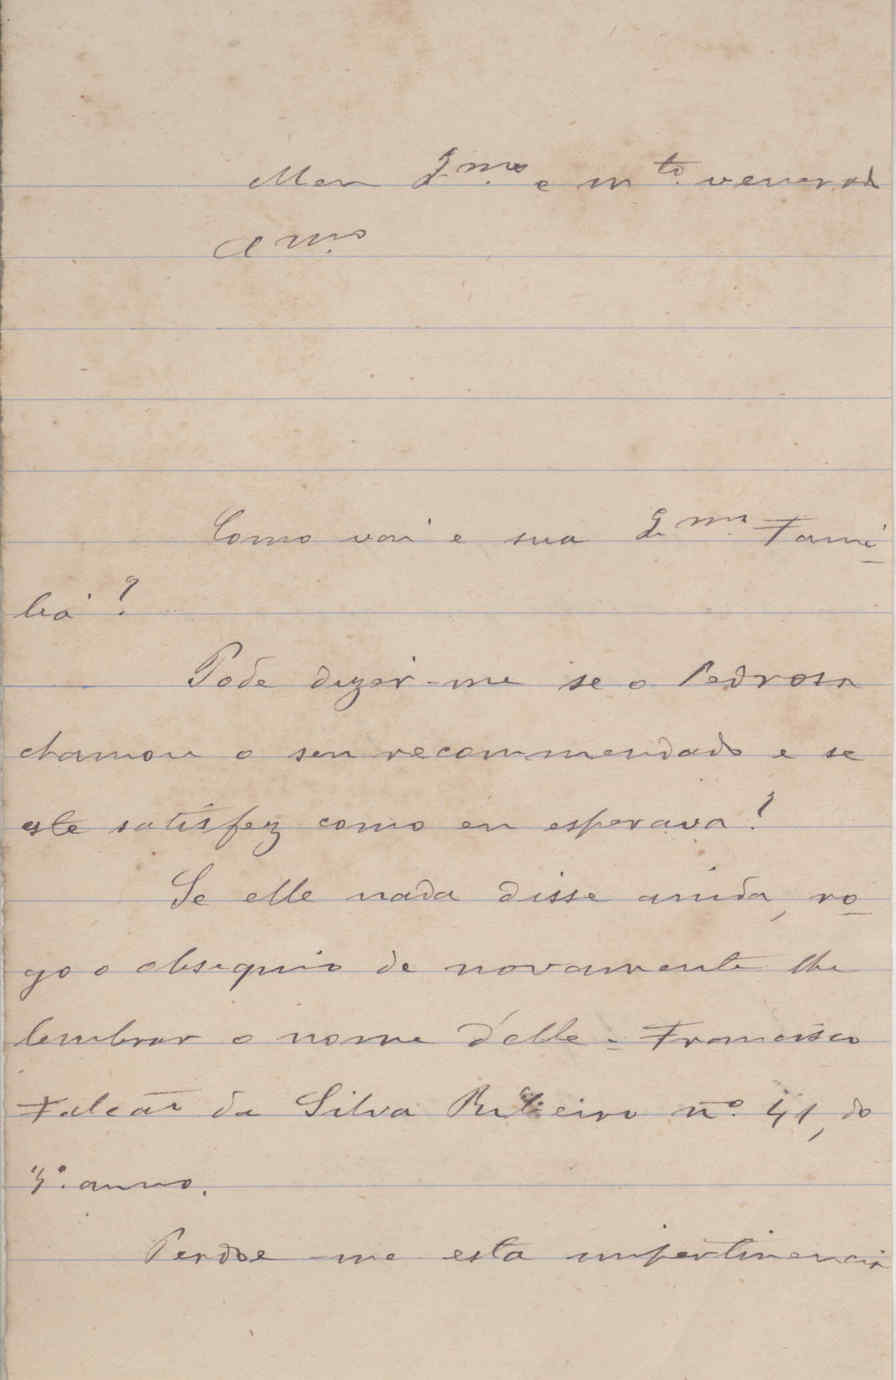 Meu Ex.mo e m.to venerad
Am.o
Como vai e sua Ex.ma Fami-
lia?
Pode dizer-me se o Pedrosa
chamou o seu recommendado e se
este satisfez como eu esperava?
Se elle nada disse ainda, ro-
go o obsequio de novamente lhe
lembrar o nome d'elle - Francisco
Falcão da Silva Ribeiro nº 41, do
4º. anno.
Perdoe-me esta impertinencia